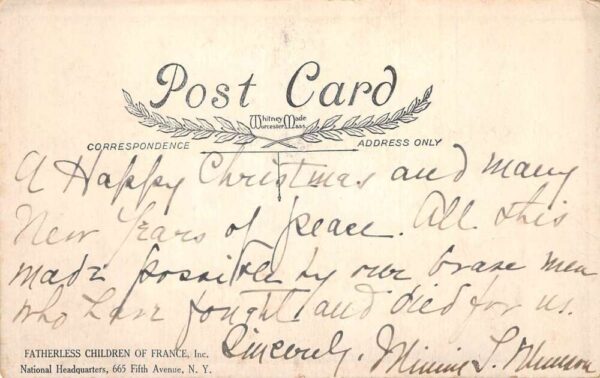 Post Card
Whitney Made
Worcester Mass.
CORRESPONDENCE
ADDRESS ONLY
A Happy Christmas and many
New Years of peace. All this
made possible by our brave men
who have fought and died for us.
Sincerely,
FATHERLESS CHILDREN OF FRANCE, Inc.
National Headquarters, 665 Fifth Avenue, N. Y.